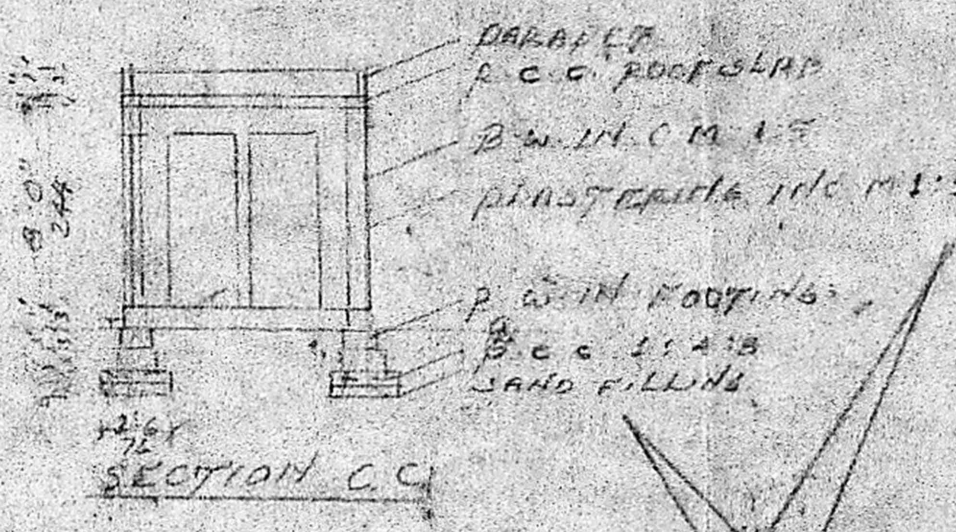 PARAPET
R.C.C. ROOF SLAB
B.W. IN C.M 1:5
PLASTERING IN C.M 1:
8'-0"
244
B.W. IN FOOTING
C.C 1:4:8
SAND FILLING
2'6
SECTION C.C